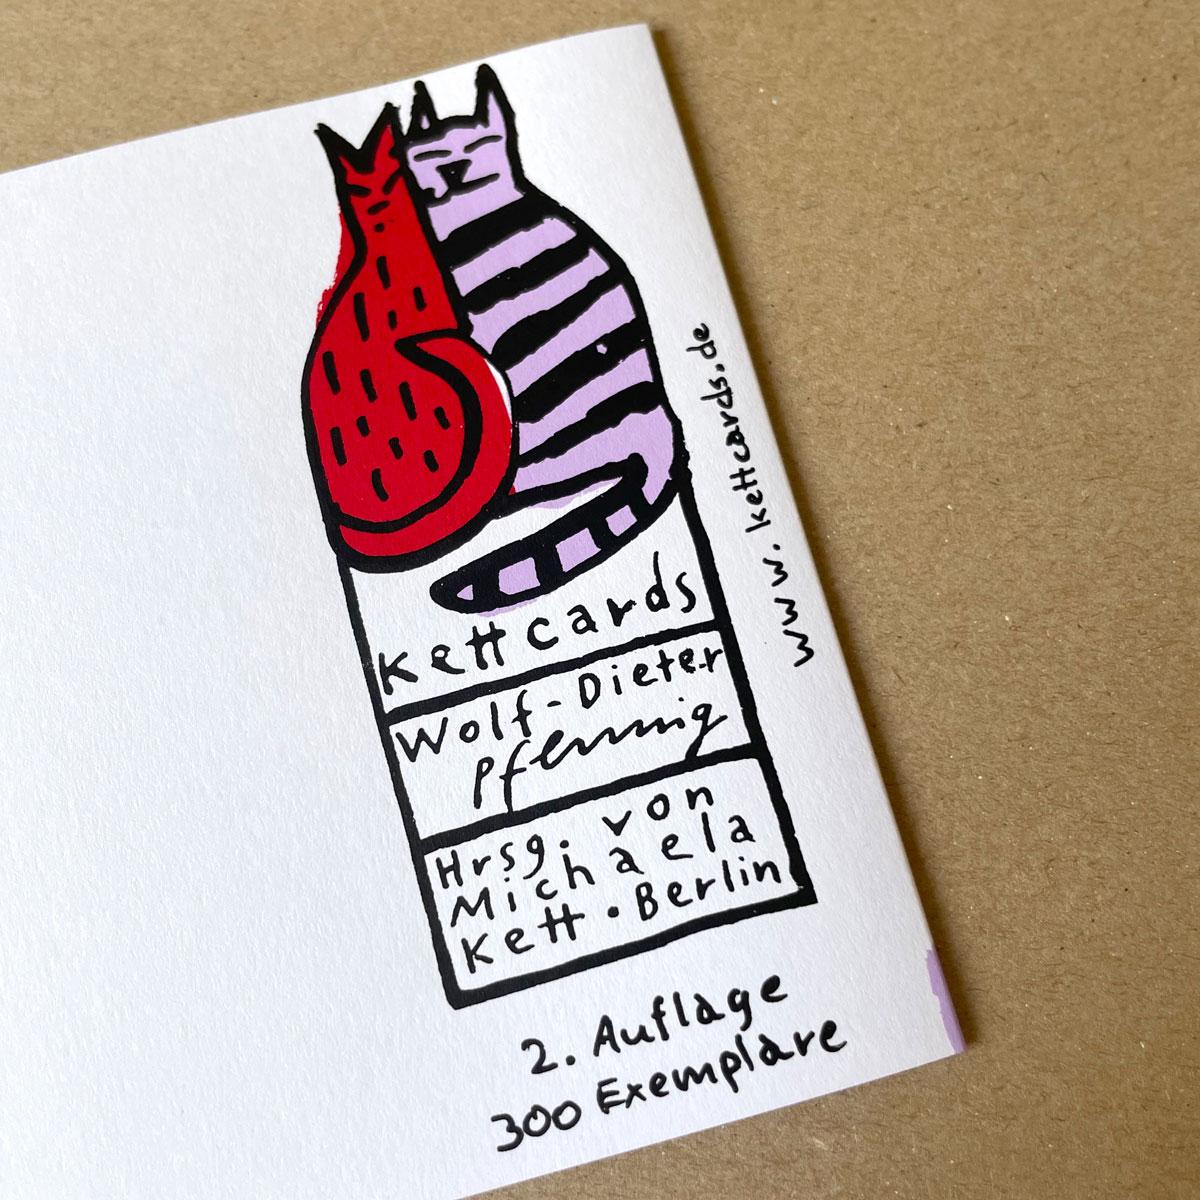 kettcards
Wolf-Dieter
Pfennig
Hrsg. von
Michaela
Kett • Berlin
www.kettcards.de
2. Auflage
300 Exemplare